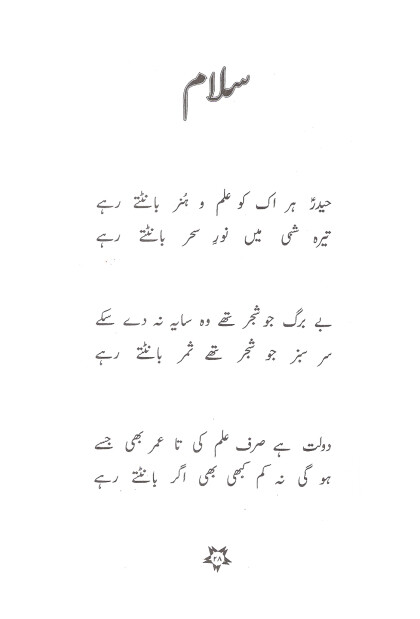 سلام
حیدرؑ ہر اک کو علم و ہُنر بانٹتے رہے
تیرہ شبی میں نورِ سحر بانٹتے رہے
بے برگ جو شجر تھے وہ سایہ نہ دے سکے
سر سبز جو شجر تھے ثمر بانٹتے رہے
دولت ہے صرف علم کی تا عمر بھی جسے
ہو گی نہ کم کبھی بھی اگر بانٹتے رہے
۲۸